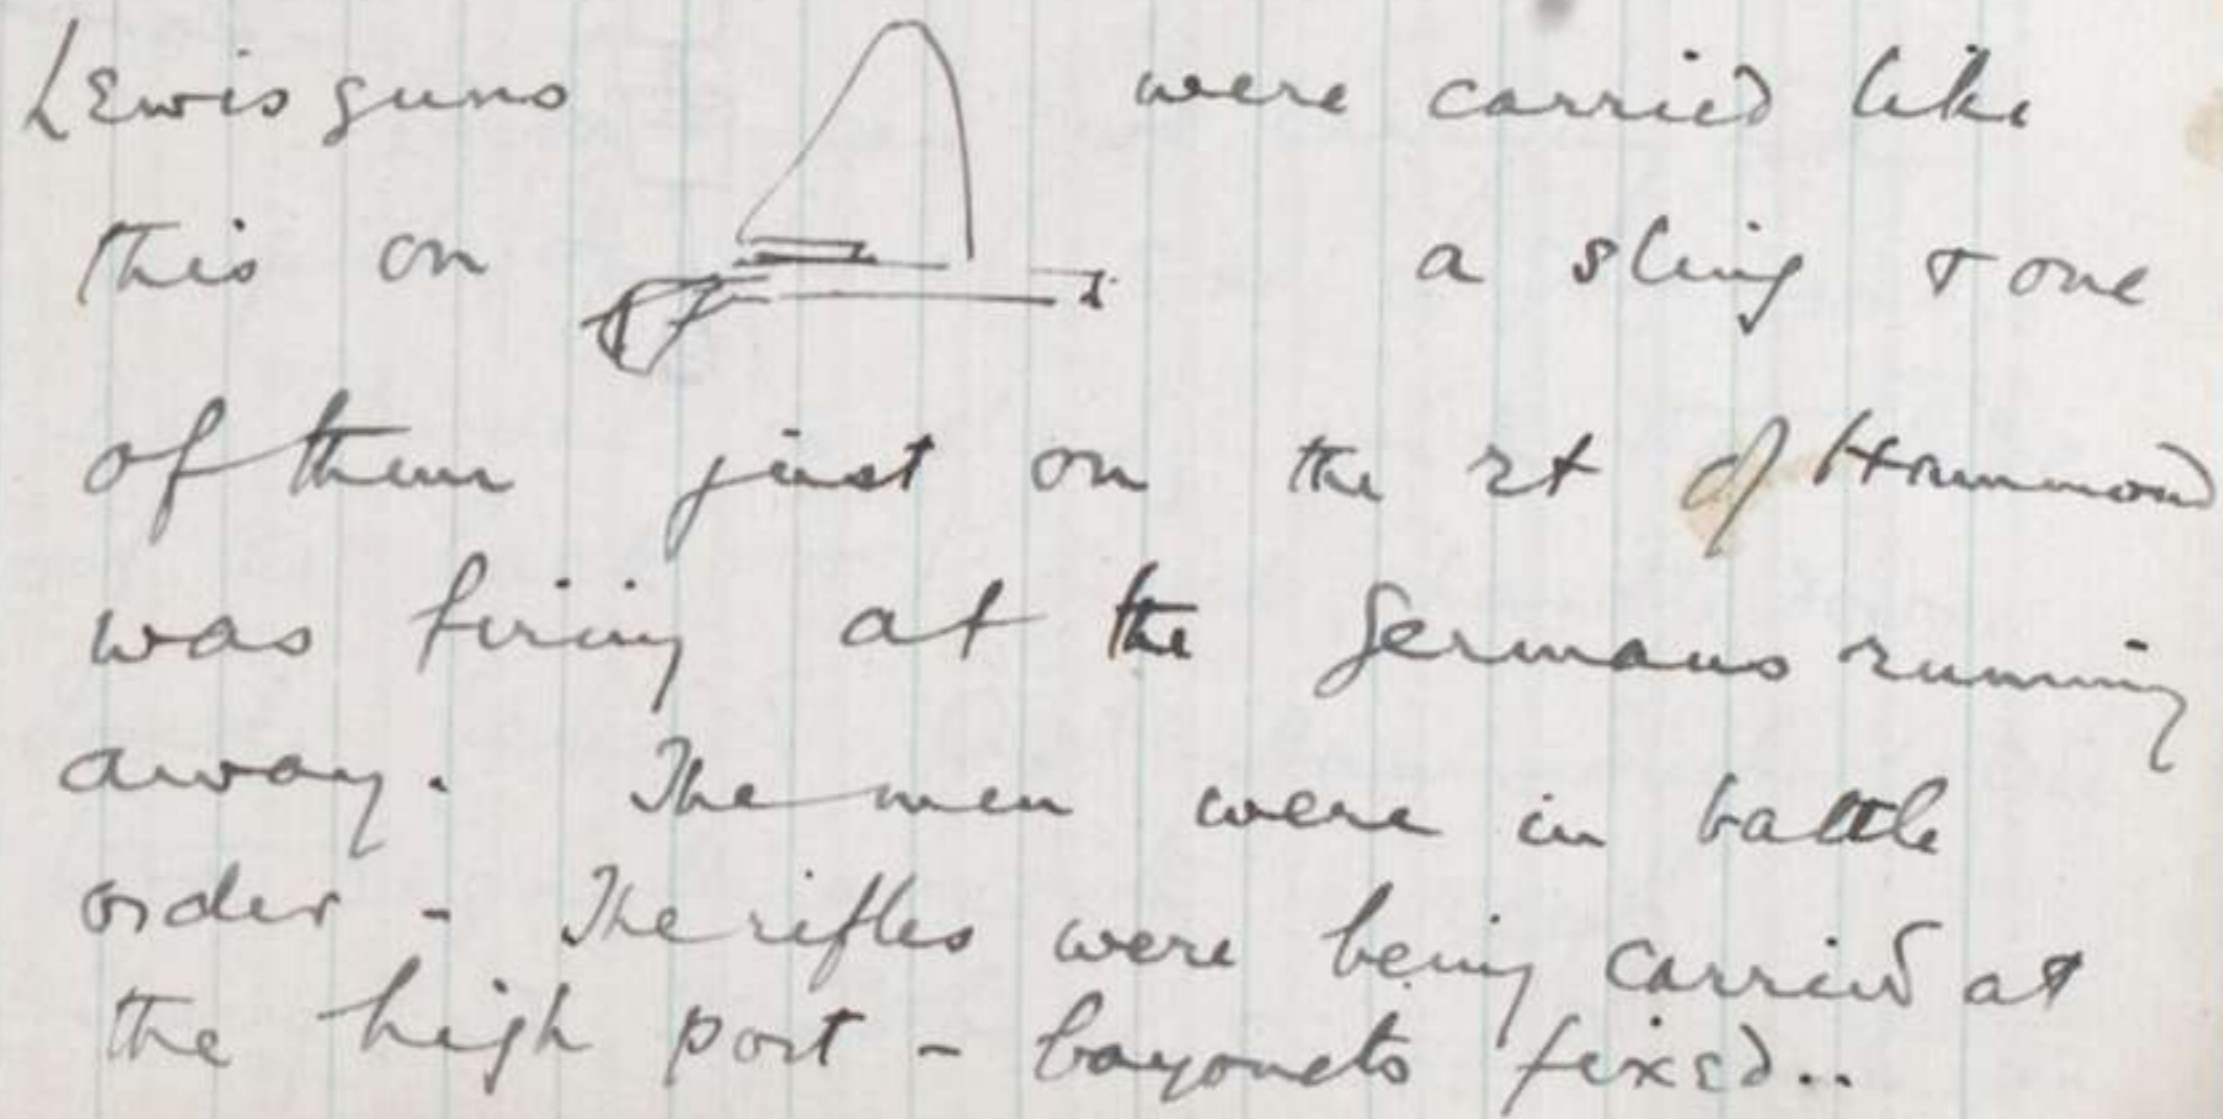 Lewis guns were carried like
this on a sling & one
of them just on the rt of Hammond
was firing at the Germans running
away. The men were in battle
order - The rifles were being carried at
the high port - bayonets fixed..